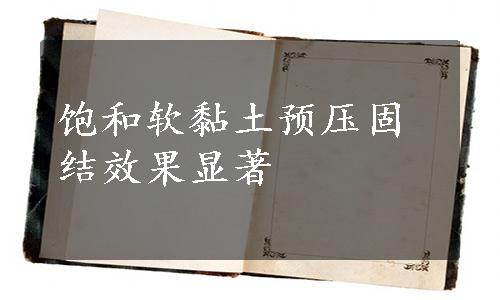 饱和软黏土预压固
结效果显著